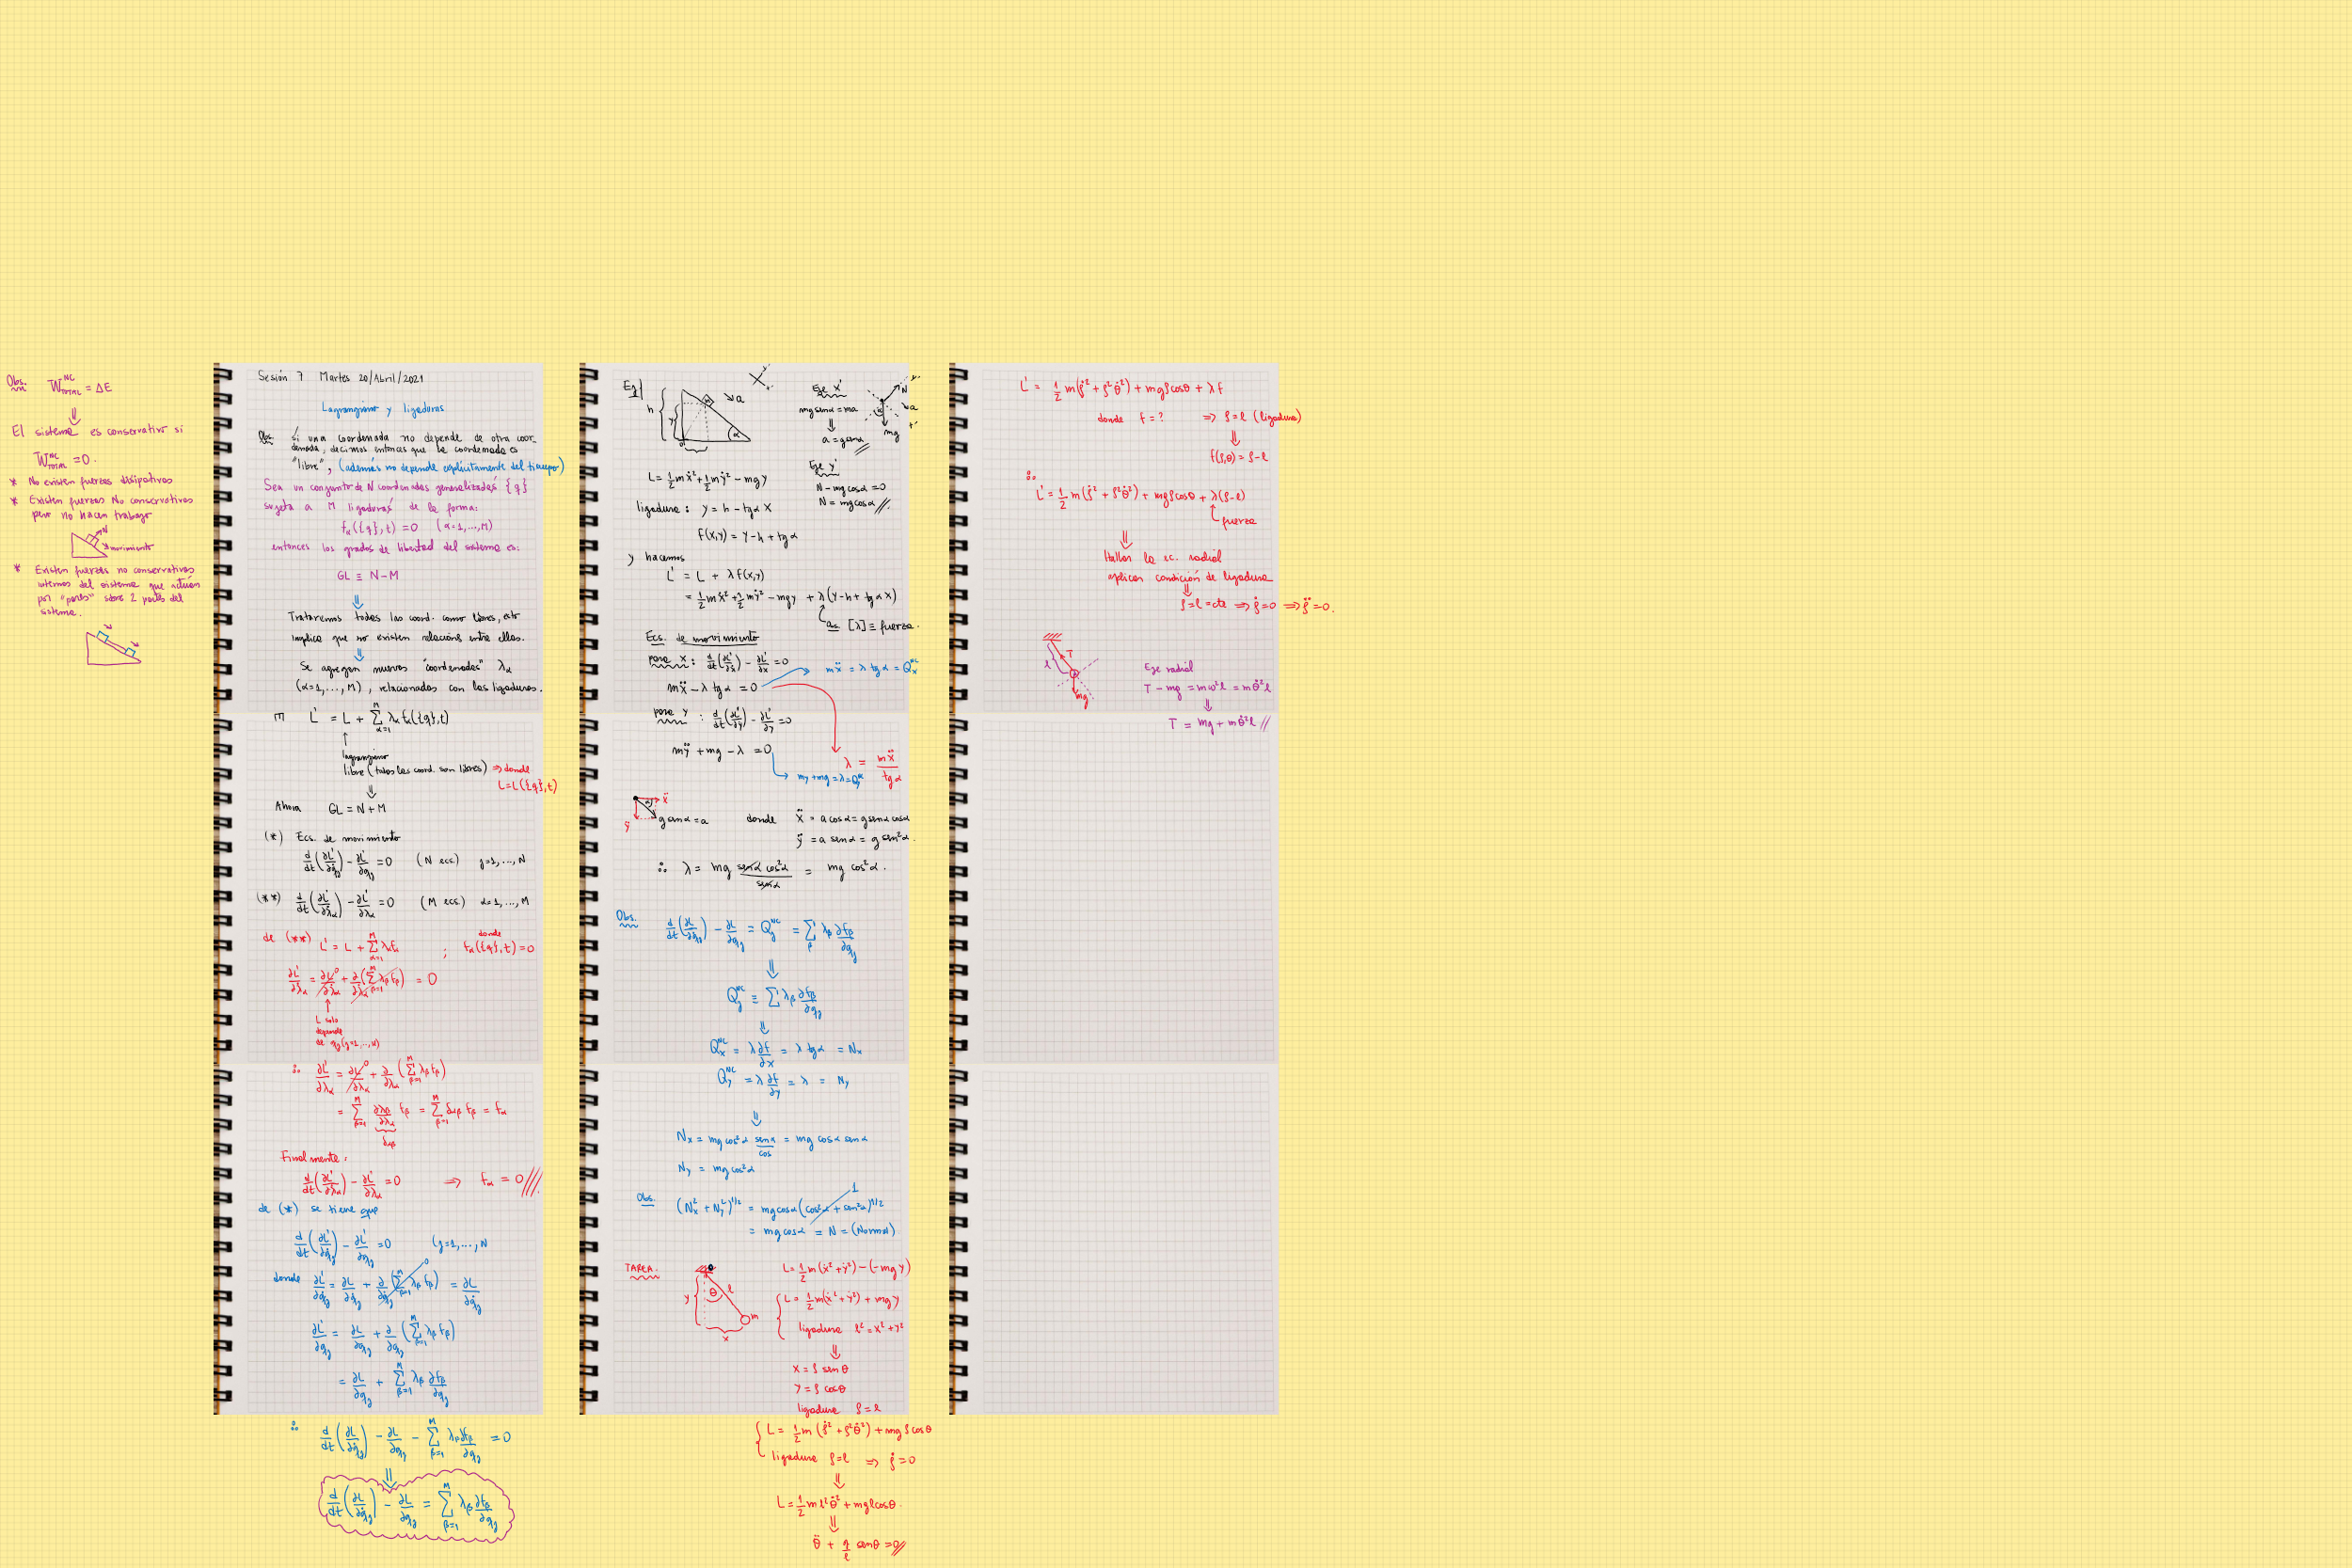 Obs. W^{NC}_{TOTAL} = ΔE
⇓
El sistema es conservativo si
W^{NC}_{TOTAL} = 0.
* No existen fuerzas disipativas
* Existen fuerzas No conservativas
pero no hacen trabajo
N
movimiento
* Existen fuerzas no conservativas
internas del sistema que actúan
por "pares" sobre 2 partes del
sistema.
Sesión 7 Martes 20/Abril/2021
Lagrangiano y ligaduras
Obs. si una coordenada no depende de otra coor-
denada, decimos entonces que la coordenada es
"libre", (además no depende explícitamente del tiempo)
Sea un conjunto de N coordenadas generalizadas {q}
sujeta a M ligaduras de la forma:
f_α({q},t) = 0 (α=1,...,M)
entonces los grados de libertad del sistema es:
GL ≡ N-M
⇓
Trataremos todas las coord. como libres, esto
implica que no existen relaciones entre ellas.
⇓
Se agregan nuevas "coordenadas" λ_α
(α=1,...,M), relacionadas con las ligaduras.
L' = L + Σ_{α=1}^{M} λ_α f_α({q},t)
↑
lagrangiano
libre (todas las coord. son libres) ⇒ donde
L=L({q},t)
⇓
Ahora GL = N+M
(*) Ecs. de movimiento
d/dt(∂L'/∂q̇_j) - ∂L'/∂q_j = 0 (N ecs.) j=1,...,N
(**) d/dt(∂L'/∂λ̇_α) - ∂L'/∂λ_α = 0 (M ecs.) α=1,...,M
de (**) L' = L + Σ_{α=1}^{M} λ_α f_α ; donde f_α({q},t)=0
∂L'/∂λ̇_α = ∂L/∂λ̇_α^0 + ∂/∂λ̇_α(Σ_{β=1}^{M} λ_β f_β) = 0
↑
L solo
depende
de q_j (j=1,..,N)
∴ ∂L'/∂λ_α = ∂L/∂λ_α^0 + ∂/∂λ_α(Σ_{β=1}^{M} λ_β f_β)
= Σ_{β=1}^{M} ∂λ_β/∂λ_α f_β = Σ_{β=1}^{M} δ_{αβ} f_β = f_α
δ_{αβ}
Finalmente:
d/dt(∂L'/∂λ̇_α) - ∂L'/∂λ_α = 0 ⇒ f_α = 0 ///.
de (*) se tiene que
d/dt(∂L'/∂q̇_j) - ∂L'/∂q_j = 0 (j=1,...,N
donde ∂L'/∂q̇_j = ∂L/∂q̇_j + ∂/∂q̇_j(Σ_{β=1}^{M} λ_β f_β)^0 = ∂L/∂q̇_j
∂L'/∂q_j = ∂L/∂q_j + ∂/∂q_j(Σ_{β=1}^{M} λ_β f_β)
= ∂L/∂q_j + Σ_{β=1}^{M} λ_β ∂f_β/∂q_j
∴ d/dt(∂L/∂q̇_j) - ∂L/∂q_j - Σ_{β=1}^{M} λ_β ∂f_β/∂q_j = 0
⇓
d/dt(∂L/∂q̇_j) - ∂L/∂q_j = Σ_{β=1}^{M} λ_β ∂f_β/∂q_j
Ej
h y m a α
Eje x'
mg senα = ma
⇓
a = g senα //
N a mg
Eje y'
N - mg cosα = 0
N = mg cosα //.
L = ½mẋ² + ½mẏ² - mgy
ligadura: y = h - tgα x
f(x,y) = y - h + tgα
y hacemos
L' = L + λ f(x,y)
= ½mẋ² + ½mẏ² - mgy + λ(y-h+tgα x)
[λ] ≡ fuerza.
Ecs. de movimiento
para x: d/dt(∂L'/∂ẋ) - ∂L'/∂x = 0
mẍ = λ tgα = Q_x^{NC}
mẍ - λ tgα = 0
para y: d/dt(∂L'/∂ẏ) - ∂L'/∂y = 0
mÿ + mg - λ = 0
λ = mẍ/tgα
mÿ+mg=λ=Q_y^{NC}
ẍ α ÿ g senα = a
donde ẍ = a cosα = g senα cosα
ÿ = a senα = g sen²α.
∴ λ = mg senα cos²α/senα = mg cos²α.
Obs. d/dt(∂L/∂q̇_j) - ∂L/∂q_j = Q_j^{NC} = Σ_β λ_β ∂f_β/∂q_j
⇓
Q_j^{NC} ≡ Σ λ_β ∂f_β/∂q_j
⇓
Q_x^{NC} = λ ∂f/∂x = λ tgα = N_x
Q_y^{NC} = λ ∂f/∂y = λ = N_y
⇓
N_x = mg cos²α senα/cos = mg cosα senα
N_y = mg cos²α
Obs. (N_x² + N_y²)^{1/2} = mg cosα (cos²α + sen²α)^{1/2} 1
= mg cosα = N = (Normal).
TAREA.
θ l y m x
L = ½m(ẋ²+ẏ²) - (-mgy)
L = ½m(ẋ²+ẏ²) + mgy
ligadura l² = x²+y²
⇓
x = ρ senθ
y = ρ cosθ
ligadura ρ = l
L = ½m(ρ̇² + ρ²θ̇²) + mgρcosθ
ligadura ρ=l ⇒ ρ̇=0
⇓
L = ½ml²θ̇² + mglcosθ.
⇓
θ̈ + g/l senθ = 0 //
L' = ½m(ρ̇² + ρ²θ̇²) + mgρcosθ + λf
donde f = ? ⇒ ρ=l (ligadura)
⇓
f(ρ,θ) = ρ-l
∴
L' = ½m(ρ̇² + ρ²θ̇²) + mgρcosθ + λ(ρ-l)
fuerza
⇓
Hallar la ec. radial
aplicar condición de ligadura
⇓
ρ=l=cte ⇒ ρ̇=0 ⇒ ρ̈=0.
l T mg
Eje radial
T - mg = mω²l = mθ̇²l
⇓
T = mg + mθ̇²l //